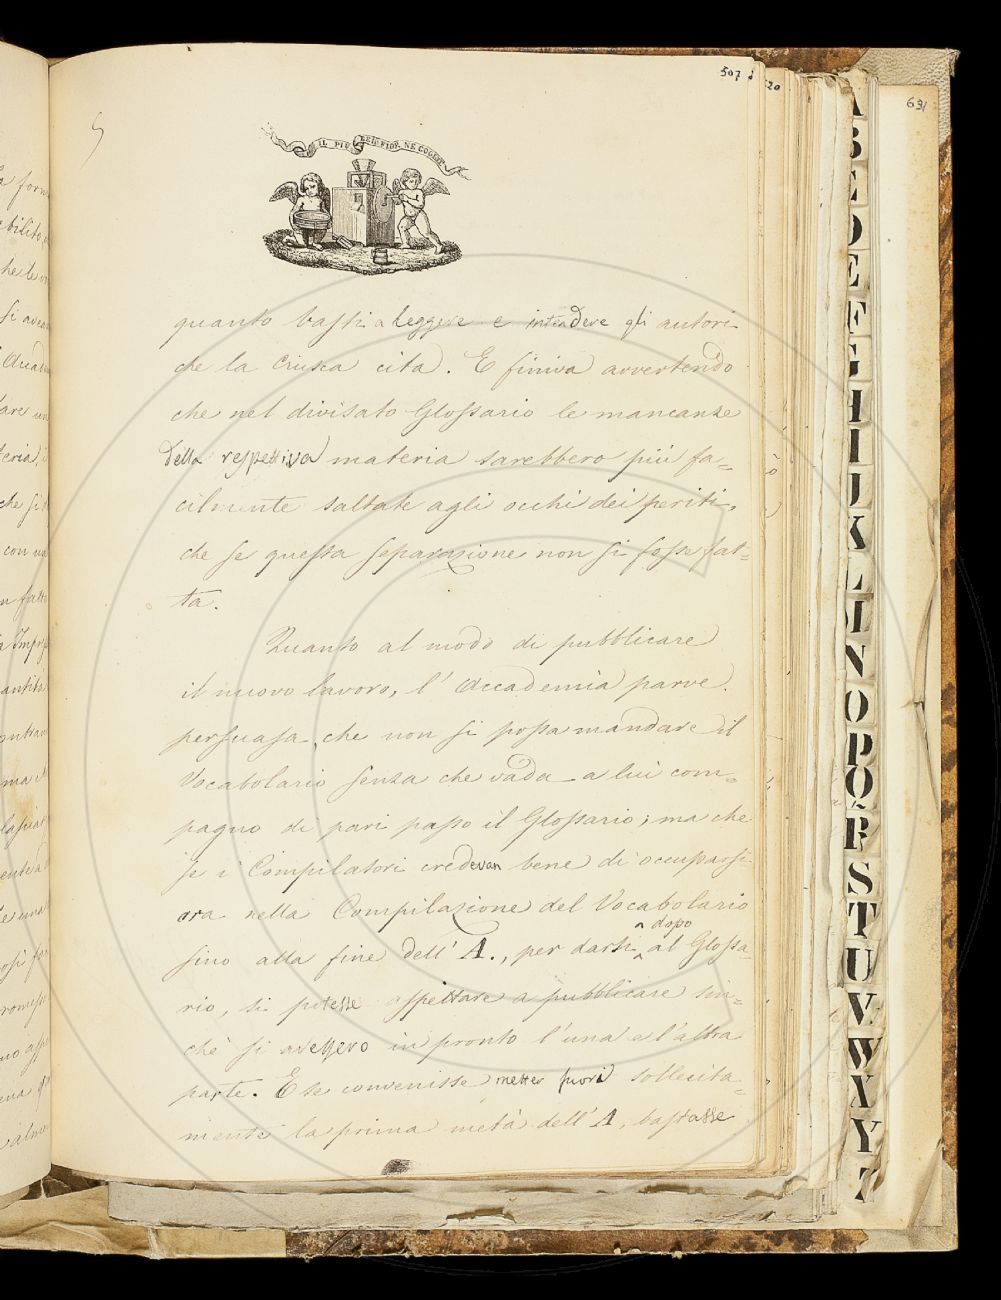 507
620
631
5
IL PIÙ BEL FIOR NE COGLIE
quanto basti a leggere e intendere gli autori
che la Crusca cita. E finiva avvertendo
che nel divisato Glossario le mancanze
della respettiva materia sarebbero più fa=
cilmente saltate agli occhi dei periti,
che se questa separazione non si fosse fat=
ta.
Quanto al modo di pubblicare
il nuovo lavoro, l'Accademia parve
persuasa, che non si possa mandare il
Vocabolario senza che vada a lui com=
pagno di pari passo il Glossario; ma che
se i Compilatori credevan bene di occuparsi
ora nella Compilazione del Vocabolario
sino alla fine dell'A., per darsi dopo al Glossa=
rio, si potesse aspettare a pubblicare sin=
chè si avessero in pronto l'una e l'altra
parte. E se convenisse metter fuori sollecita=
mente la prima metà dell'A, bastasse
A
B
C
D
E
F
G
H
I
J
K
L
M
N
O
P
Q
R
S
T
U
V
W
X
Y
Z